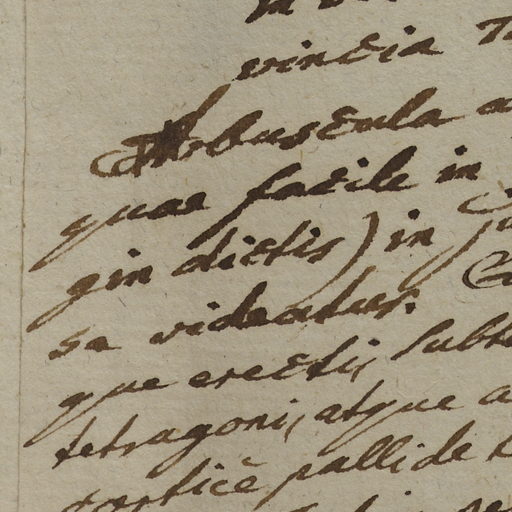 vincia
Arbuscula
quae facile in
gin dictis) in
sa videatur.
que erectis, subt
tetragonis, atque a
cortice pallide